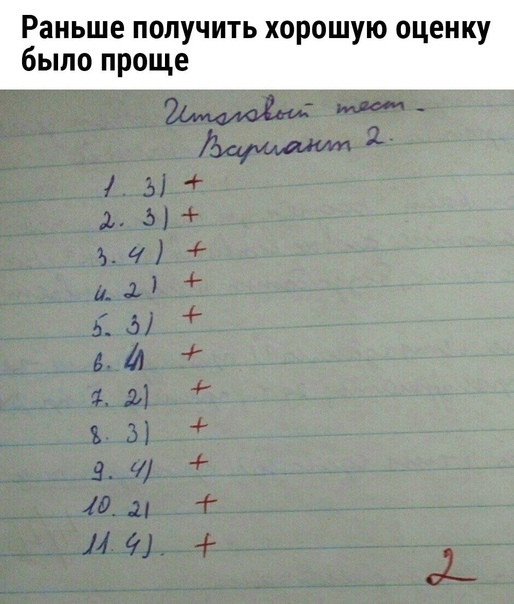 Раньше получить хорошую оценку
было проще
Итоговый тест.
Вариант 2.
1. 3) +
2. 3) +
3. 4) +
4. 2) +
5. 3) +
6. 4) +
7. 2) +
8. 3) +
9. 4) +
10. 2) +
11. 4). +
2